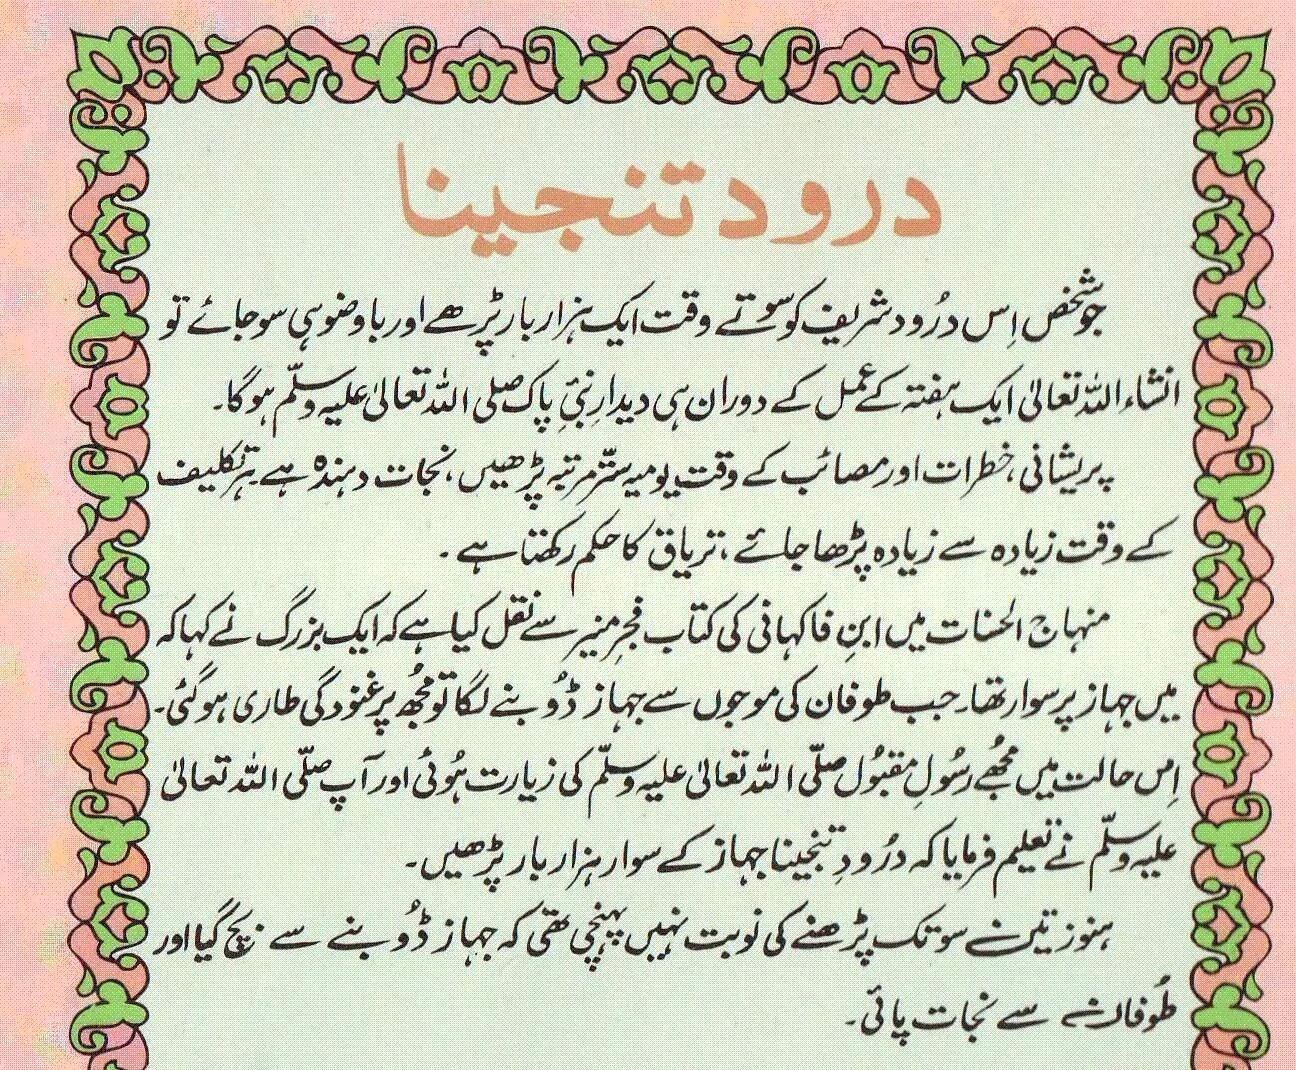 درود تنجینا
جو شخص اِس دُرود شریف کو سوتے وقت ایک ہزار بار پڑھے اور باوضو ہی سو جائے تو
انشاء اللہ تعالیٰ ایک ہفتہ کے عمل کے دوران ہی دیدارِ نبیِ پاک صلی اللہ تعالیٰ علیہ وسلّم ہوگا۔
پریشانی، خطرات اور مصائب کے وقت یومیہ ستّر مرتبہ پڑھیں، نجات دہندہ ہے۔ ہر تکلیف
کے وقت زیادہ سے زیادہ پڑھا جائے، تریاق کا حکم رکھتا ہے۔
منہاج الحسنات میں ابنِ فاکہانی کی کتاب فجرِ منیر سے نقل کیا ہے کہ ایک بزرگ نے کہا کہ
میں جہاز پر سوار تھا۔ جب طوفان کی موجوں سے جہاز ڈُوبنے لگا تو مُجھ پر غنودگی طاری ہو گئی۔
اِس حالت میں مُجھے رسُولِ مقبُول صلّی اللہ تعالیٰ علیہ وسلّم کی زیارت ہُوئی اور آپ صلّی اللہ تعالیٰ
علیہ وسلّم نے تعلیم فرمایا کہ درُودِ تنجینا جہاز کے سوار ہزار بار پڑھیں۔
ہنوز تین سو تک پڑھنے کی نوبت نہیں پہنچی تھی کہ جہاز ڈُوبنے سے بچ گیا اور
طُوفان سے نجات پائی۔